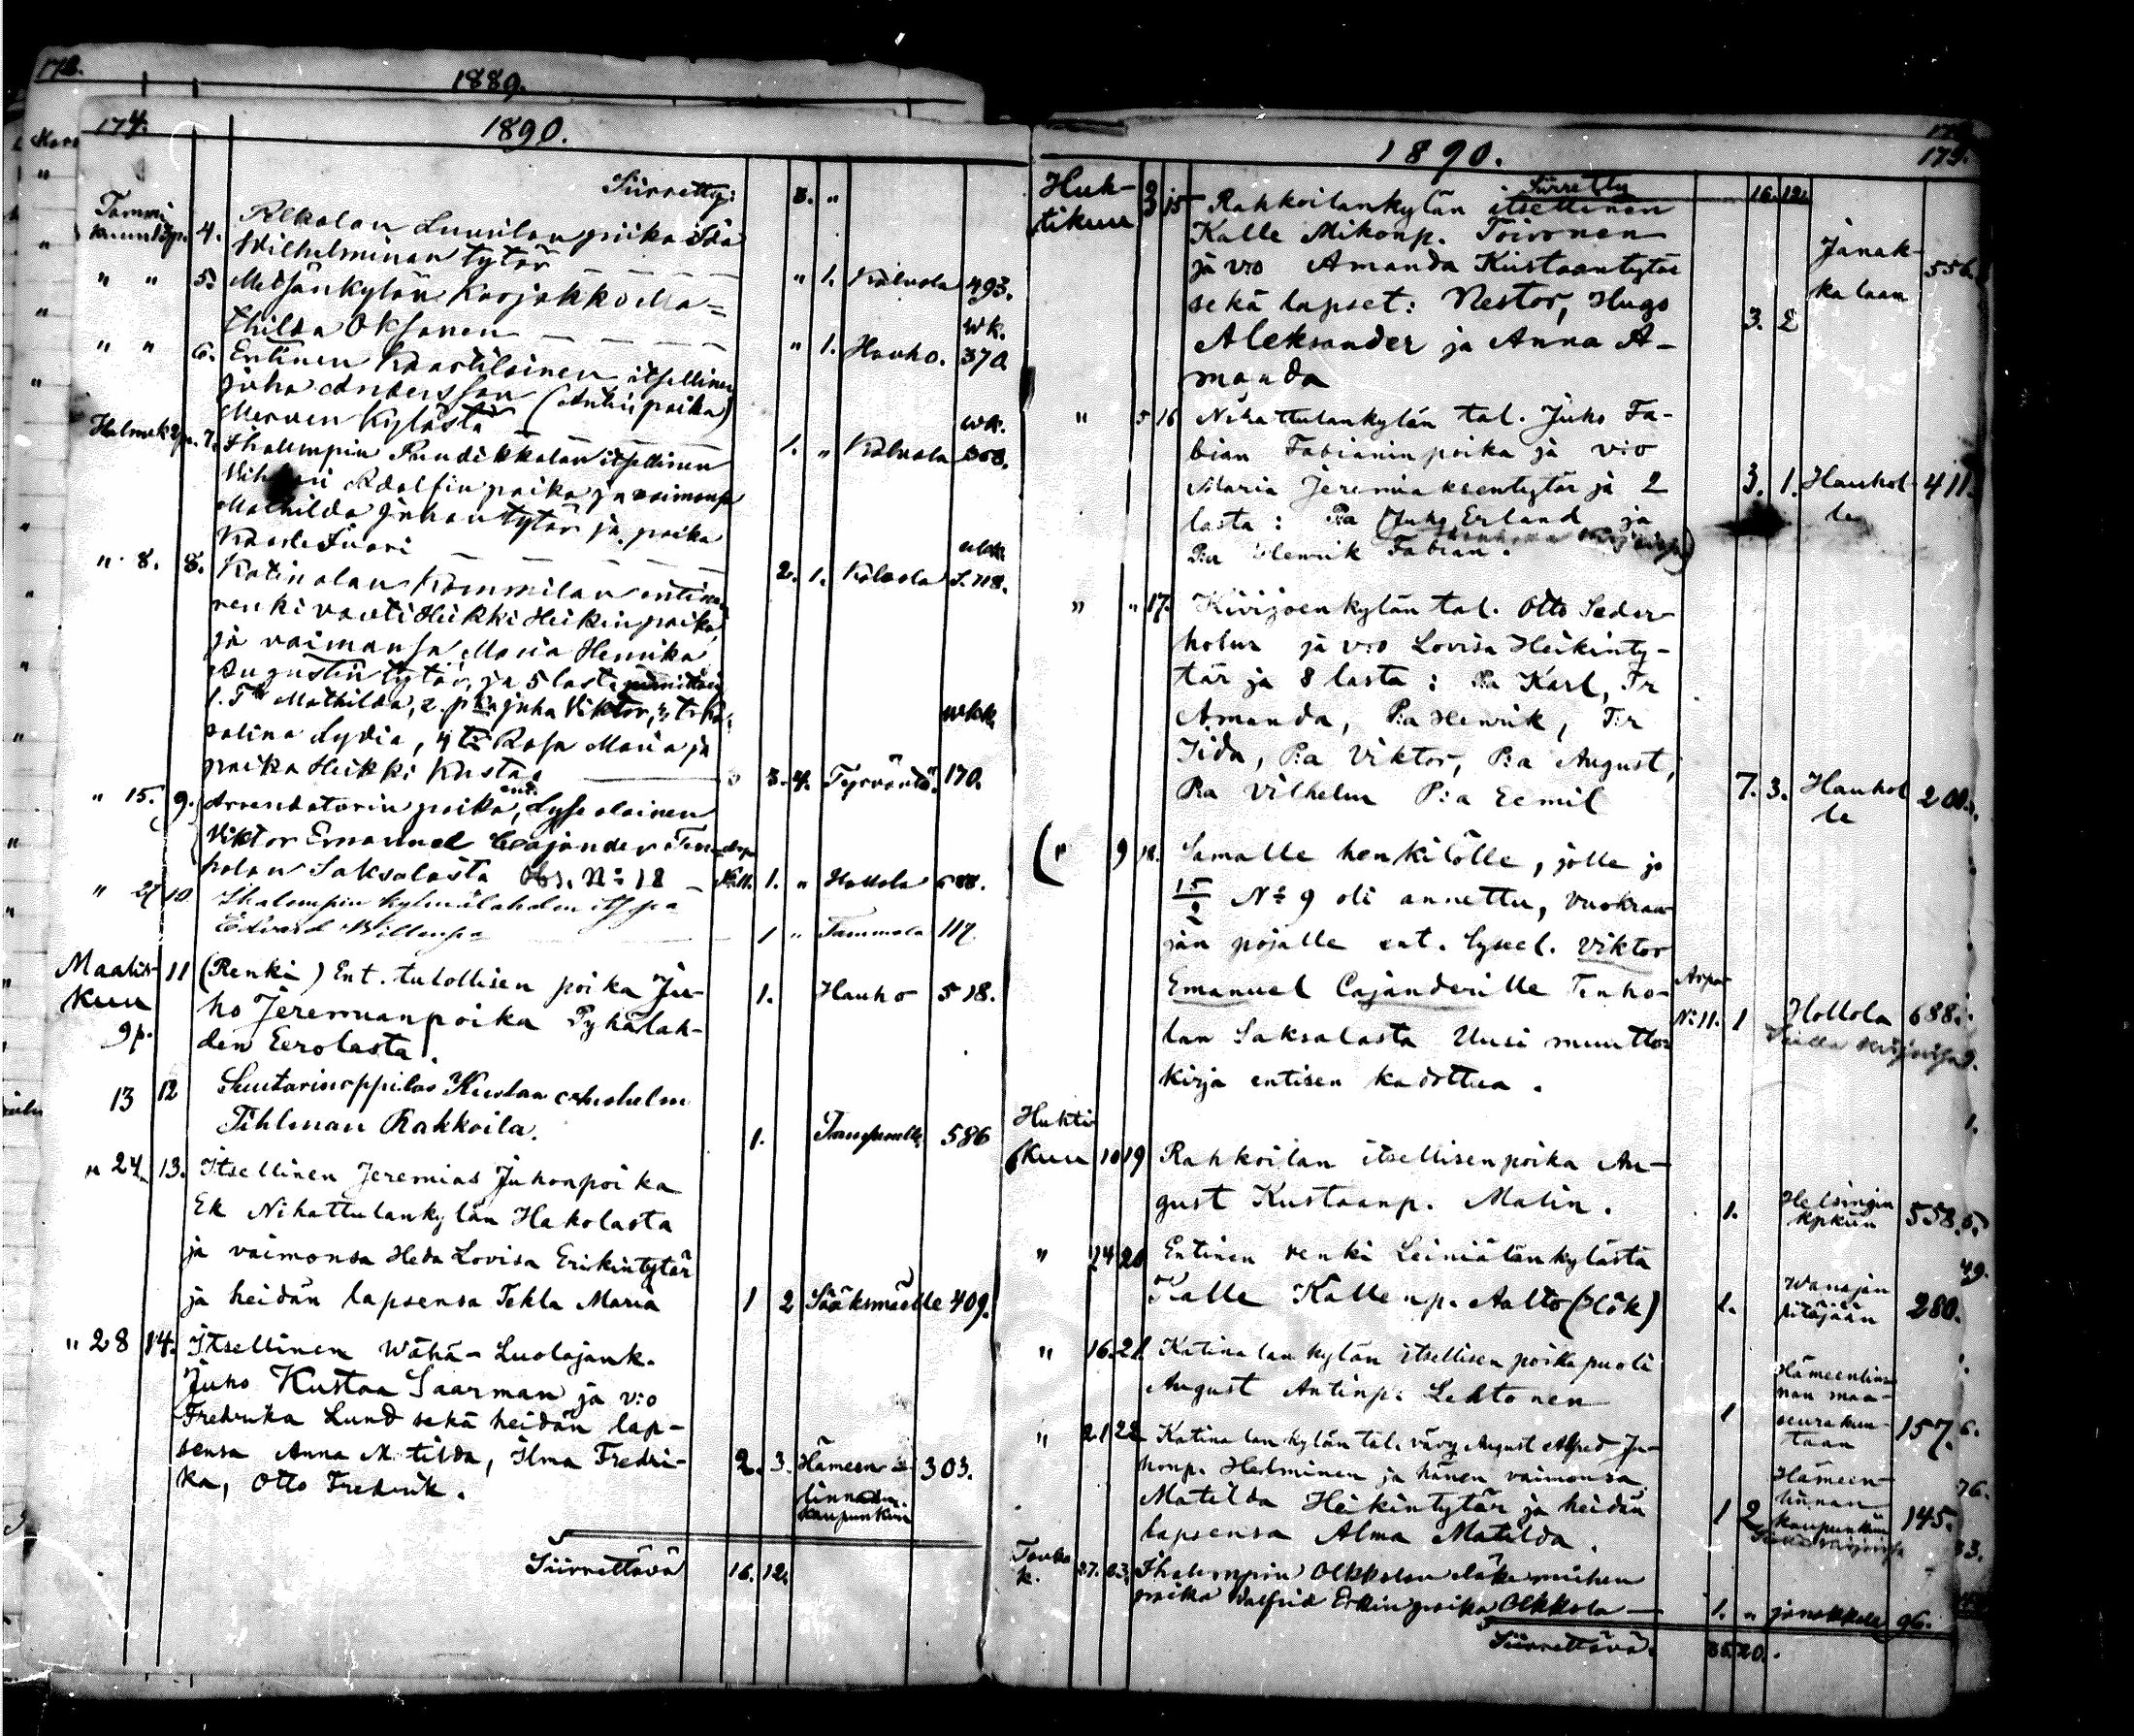 172.
1889.
174.
1890.
Siirretty: 3. "
Tammi kuun 13p. 4. Alkolan Luusilan piika Ida
Wilhelminan tytär " 1. Kalvola 493.
" " 5. Metsänkylän Karjakko Ma=
thilda Oksanen " 1. Hauho. wk. 370.
" " 6. Entinen Knaapilainen itsellinen
Juha Andersson (Antinpoika)
Merven Kylästä 1. " Kalvola wk. 308.
Helmik 2p. 7. Ihalempin Pundikkalan itsellinen
Adolfin poika ja vaimonsa
Mathilda Juhan tytär ja poika
Kaarle Iivari 2. 1. Kalvola S. 718.
" 8. 8. Katinalan Kömmilan entinen
renki vouti Heikki Heikin poika
ja vaimonsa Maria Henrika
Augustin tytär, ja 5 lasta
1. Tr Mathilda, 2. pka Juha Viktor, 3. tr Ka-
rolina Lydia, 4 tr Rosa Maria ja
poika Heikki Kusta. 3. 4. Tyrväntö. 170.
" 15. 9. Arrendatorin poika, ent. Lyseolainen
Viktor Emanuel Cajander Ten-
holan Saksalasta Obs. No 18 No 11. 1. " Hollola 688.
" 21 10 Ihalempin kylmälahden its pa
Edvard Willenpa 1 " Tammela 117.
Maalis-
kuu
9p. 11 (Renki) Ent. tulollisen poika Ju-
ho Jeremianpoika Pyhälah-
den Eerolasta. 1. Hauho 518.
13 12 Suutarinoppilas Kustaa
Tihlman Rakkoila. 1. Tampereelle 586
" 24. 13. Itsellinen Jeremias Juhonpoika
Ek Nihattulankylän Hakolasta
ja vaimonsa Heda Lovisa Erikintytär
ja heidän lapsensa Tekla Maria 1 2 Sääksmäelle 409.
" 28 14. Itsellinen Wähä-Luolajank.
Juho Kustaa Saarman ja v:o
Fredrika Lund sekä heidän lap-
sensa Anna Matilda, Ilma Fredri-
ka, Otto Fredrik. 2. 3. Hämeen-
linnan
kaupunkiin 303.
Siirrettävä 16. 12.
1890.
175.
Siirretty 16. 12.
Huh-
tikuu 3 15 Rahkoilankylän itsellinen
Kalle Mikonp. Toivonen
ja v:o Amanda Kustaantytär
sekä lapset: Nestor, Hugo
Aleksander ja Anna A-
manda 3. 2 Janak-
kalaan 556.
" 5 16 Nihattulankylän tal. Juho Fa-
bian Fabianinpoika ja v:o
Maria Jeremiaksentytär ja 2
lasta: P:a Juho Erland ja
P:a Henrik Fabian. 3. 1. Hauhol-
le 411.
" " 17. Kivijoenkylän tal. Otto Seder-
holm ja v:o Lovisa Heikinty-
tär ja 8 lasta: P:a Karl, Tr
Amanda, P:a Henrik, T:r
Iida, P:a Viktor, P:a August,
P:a Vilhelm P:a Eemil 7. 3. Hauhol
le
(" 9 18. Samalle henkilölle, jolle jo
15/2 No 9 oli annettu, vuokraa-
jan pojalle ent. lyseel. Viktor
Emanuel Cajanderille Tenho-
lan Saksalasta Uusi muutto-
kirja entisen kadottua. Arpa No 11. 1 Hollola 688.
Huhti
kuu 10 19 Rahkoilan itsellisenpoika Au-
gust Kustaanp. Malin. 1. Helsingin
kpkiin 558.
" 14 20 Entinen renki Leiniälänkylästä
Kalle Kallenp. Aalto (Hök) 1. Wanajan
pitäjään 280.
" 16. 21. Katinalankylän itsellisen poikapuoli
August Antinp. Lehtonen 1 Hämeenlin-
nan maa-
seurakun-
taan 157.
" 21 22 Katinalankylän tal. väwy August Alfred Ju-
honp. Helminen ja hänen vaimonsa
Matilda Heikintytär ja heidän
lapsensa Alma Matilda. 1 2 Hämeen-
linnan
kaupunkiin 145.
Touko
k. 27. 23. Ihalempin Olkkolan
poika Valfrid Erkinpoika Olkkola 1. " Janakkala 96.
Siirrettävä. 35. 20.